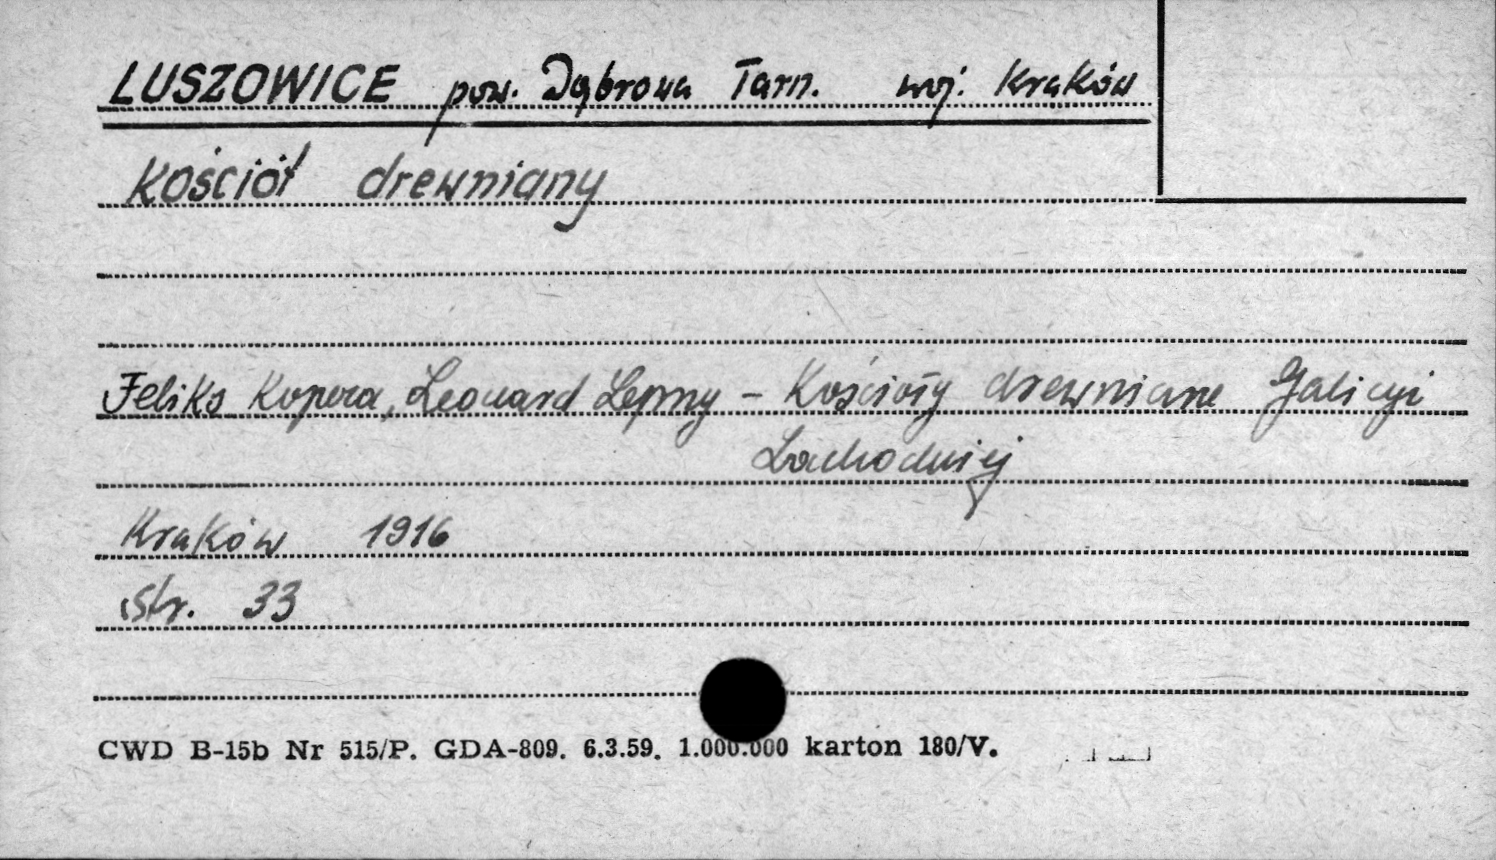 LUSZOWICE pow. Dąbrowa Tarn. woj. Kraków
Kościół drewniany
Feliks Kopera, Leonard Lepszy – Kościoły drewniane Galicyi
Zachodniej
Kraków 1916
str. 33
CWD B-15b Nr 515/P. GDA-809. 6.3.59. 1.000.000 karton 180/V.